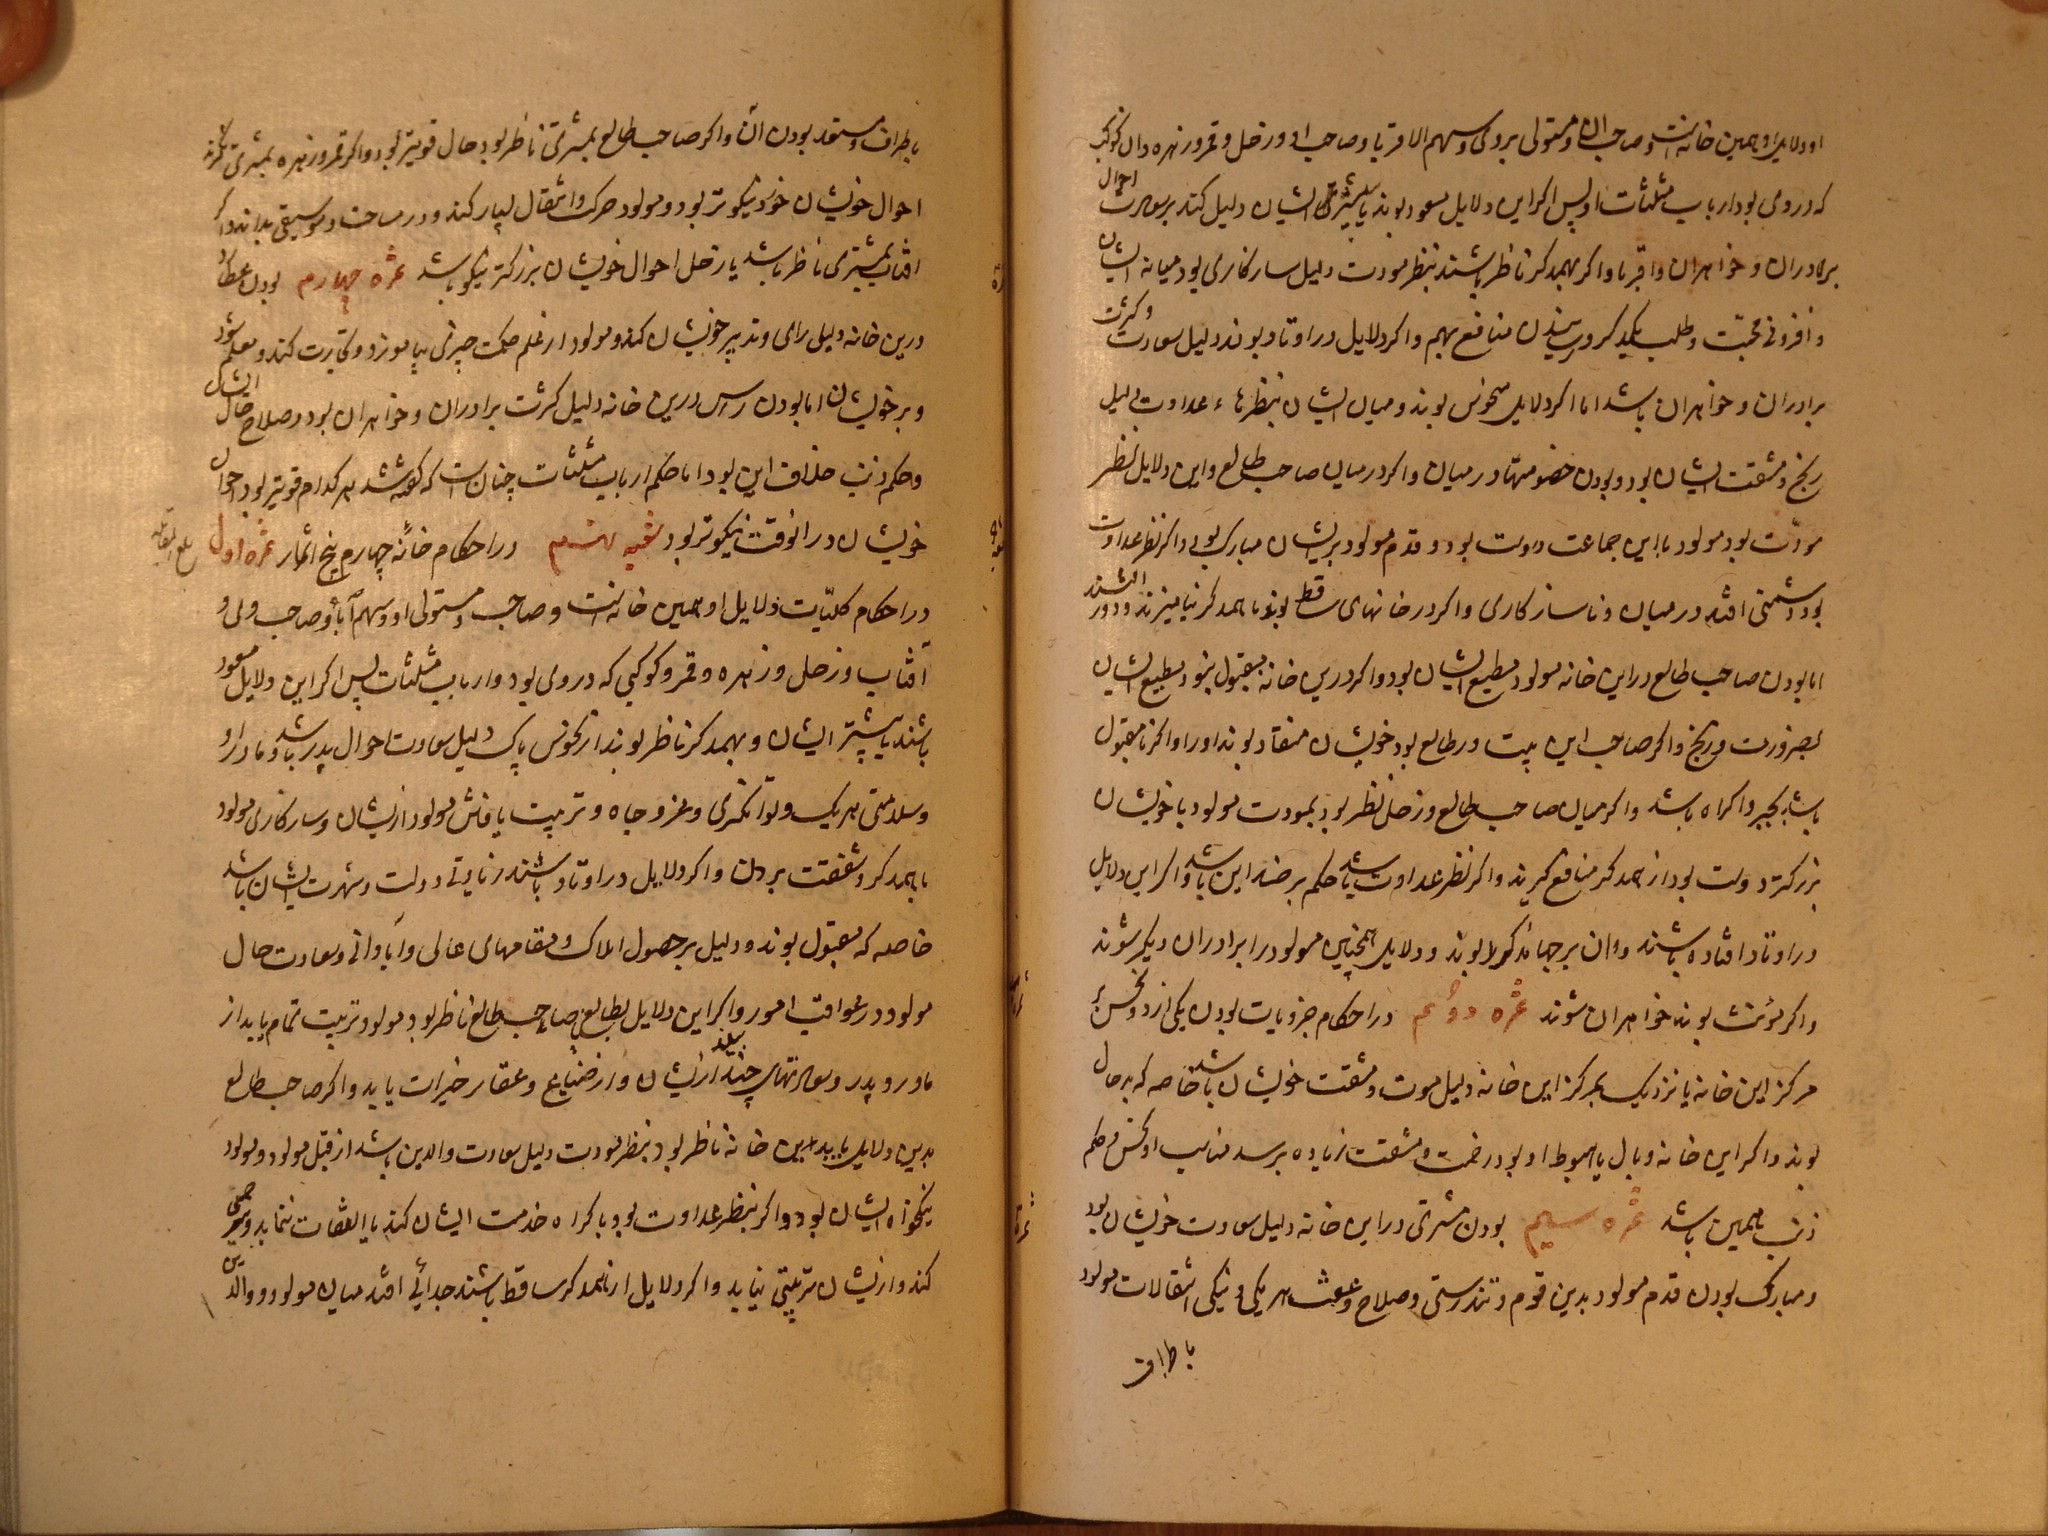 او دلایل او همین خانه است و صاحب آن و مستولی بر وی و سهم الاقربا و صاحب او و زحل و قمر و زهره و آن کوکب
که در وی بود و ارباب مثلثات او پس اگر این دلایل مسعود بوند یا بیشتری ایشان دلیل کند بر سعادت احوال
برادران و خواهران و اقربا و اگر بهمدیگر ناظر باشند بنظر مودت دلیل سازکاری بود میانه ایشان
و افزونی محبت و طلب یکدیگر و رسیدن منافع بهم و اگر دلایل در اوتاد بوند دلیل سعادت و کثرت
برادران و خواهران باشد اما اگر دلایل منحوس بوند و میان ایشان نظرهاء عداوت دلیل
رنج و مشقت ایشان بود و بودن خصومتها در میان و اگر در میان صاحب طالع و این دلایل نظر
مودّت بود مولود با این جماعت دوست بود و قدم مولود بر ایشان مبارک بود و اگر نظر عداوت
بود دشمنی افتد در میان و ناسازکاری و اگر در خانهای ساقط بوند با همدگر نیامیزند و دور باشند
اما بودن صاحب طالع در این خانه مولود مطیع ایشان بود و اگر درین خانه مقبول نبود مطیع ایشان
بضرورت و رنج و اگر صاحب این بیت در طالع بود خویشان منقاد بوند او را و اگر نامقبول
باشد بجبر و اکراه باشد و اگر میان صاحب طالع و زحل نظر بود بمودت مولود با خویشان
بزرگتر دوست بود از همدگر منافع گیرند و اگر نظر عداوت باشد حکم بر ضد این باشد و اگر این دلایل
در اوتاد افتاده باشند و آن برجها مذکر بوند و دلایل همچنین مولود را برادران دیگر شوند
و اگر مؤنث بوند خواهران شوند ثمره دوم در احکام جزویات بودن یکی از دو نحس بر
مرکز این خانه یا نزدیک بمرکز این خانه دلیل موت و مشقت خویشان باشد خاصه که بد حال
بوند و اگر این خانه وبال یا هبوط او بود زحمت و مشقت زیاده برسد مناسب او نحس و حکم
ذنب همین باشد ثمره سیم بودن مشتری در این خانه دلیل سعادت خویشان بود
و مبارک بودن قدم مولود بدین قوم و تندرستی و صلاح و عفت هر یکی و نیکی انتقالات مولود
باطراف
باطراف و مستعد بودن آن و اگر صاحب طالع بمشتری ناظر بود حال قویتر بود و اگر قمر و زهره بمشتری نگرند
احوال خویشان خرد نیکوتر بود و مولود حرکت و انتقال بسیار کند و در مساحت و موسیقی بداند و اگر
آفتاب بمشتری ناظر باشد یا زحل احوال خویشان بزرگتر نیکو باشد ثمره چهارم بودن عطارد
درین خانه دلیل رای و تدبیر خویشان کند و مولود از علم حکمت چیزی بیاموزد و کتابت کند و معلم شود
و بر خویشان اما بودن رأس درین خانه دلیل کثرت برادران و خواهران بود و صلاح حال ایشان
و حکم ذنب خلاف این بود اما حکم ارباب مثلثات چنان است که گفته شد هر کدام قویتر بود احوال
خویشان در آنوقت نیکوتر بود شعبه هشتم در احکام خانه چهارم پنج اثمار ثمره اول
در احکام کلیّات دلایل او همین خانه است و صاحب و مستولی او و سهم آباء و صاحب وی و
آفتاب و زحل و زهره و قمر و کوکبی که در وی بود و ارباب مثلثات پس اگر این دلایل مسعود
باشند یا بیشتر ایشان و بهمدگر ناظر بوند از نحوس پاک دلیل سعادت احوال پدر باشد و مادر او
و سلامتی هر یک و توانگری و عز و جاه و تربیت یافتن مولود از ایشان و سازکاری مولود
با همدگر و شفقت بردن و اگر دلایل در اوتاد باشند زیادتی دولت و شهرت ایشان باشد
خاصه که مقبول بوند و دلیل بر حصول املاک و مقامهای عالی و آبادانی و سعادت حال
مولود در عواقب امور و اگر این دلایل بطالع یا صاحب طالع ناظر بود مولود تربیت تمام یابد از
مادر و پدر و سعادتهای چند بیند از ایشان و از ضیاع و عقار خیرات یابد و اگر صاحب طالع
بدین دلایل یا بدین خانه ناظر بود بنظر مودت دلیل سعادت والدین باشد از قبل مولود و مولود
نیکخواه ایشان بود و اگر بنظر عداوت بود باکراه خدمت ایشان کند یا التفات ننماید و
کند و از ایشان تربیتی نیابد و اگر دلایل از همدگر ساقط باشند جدائی افتد میان مولود و والدین